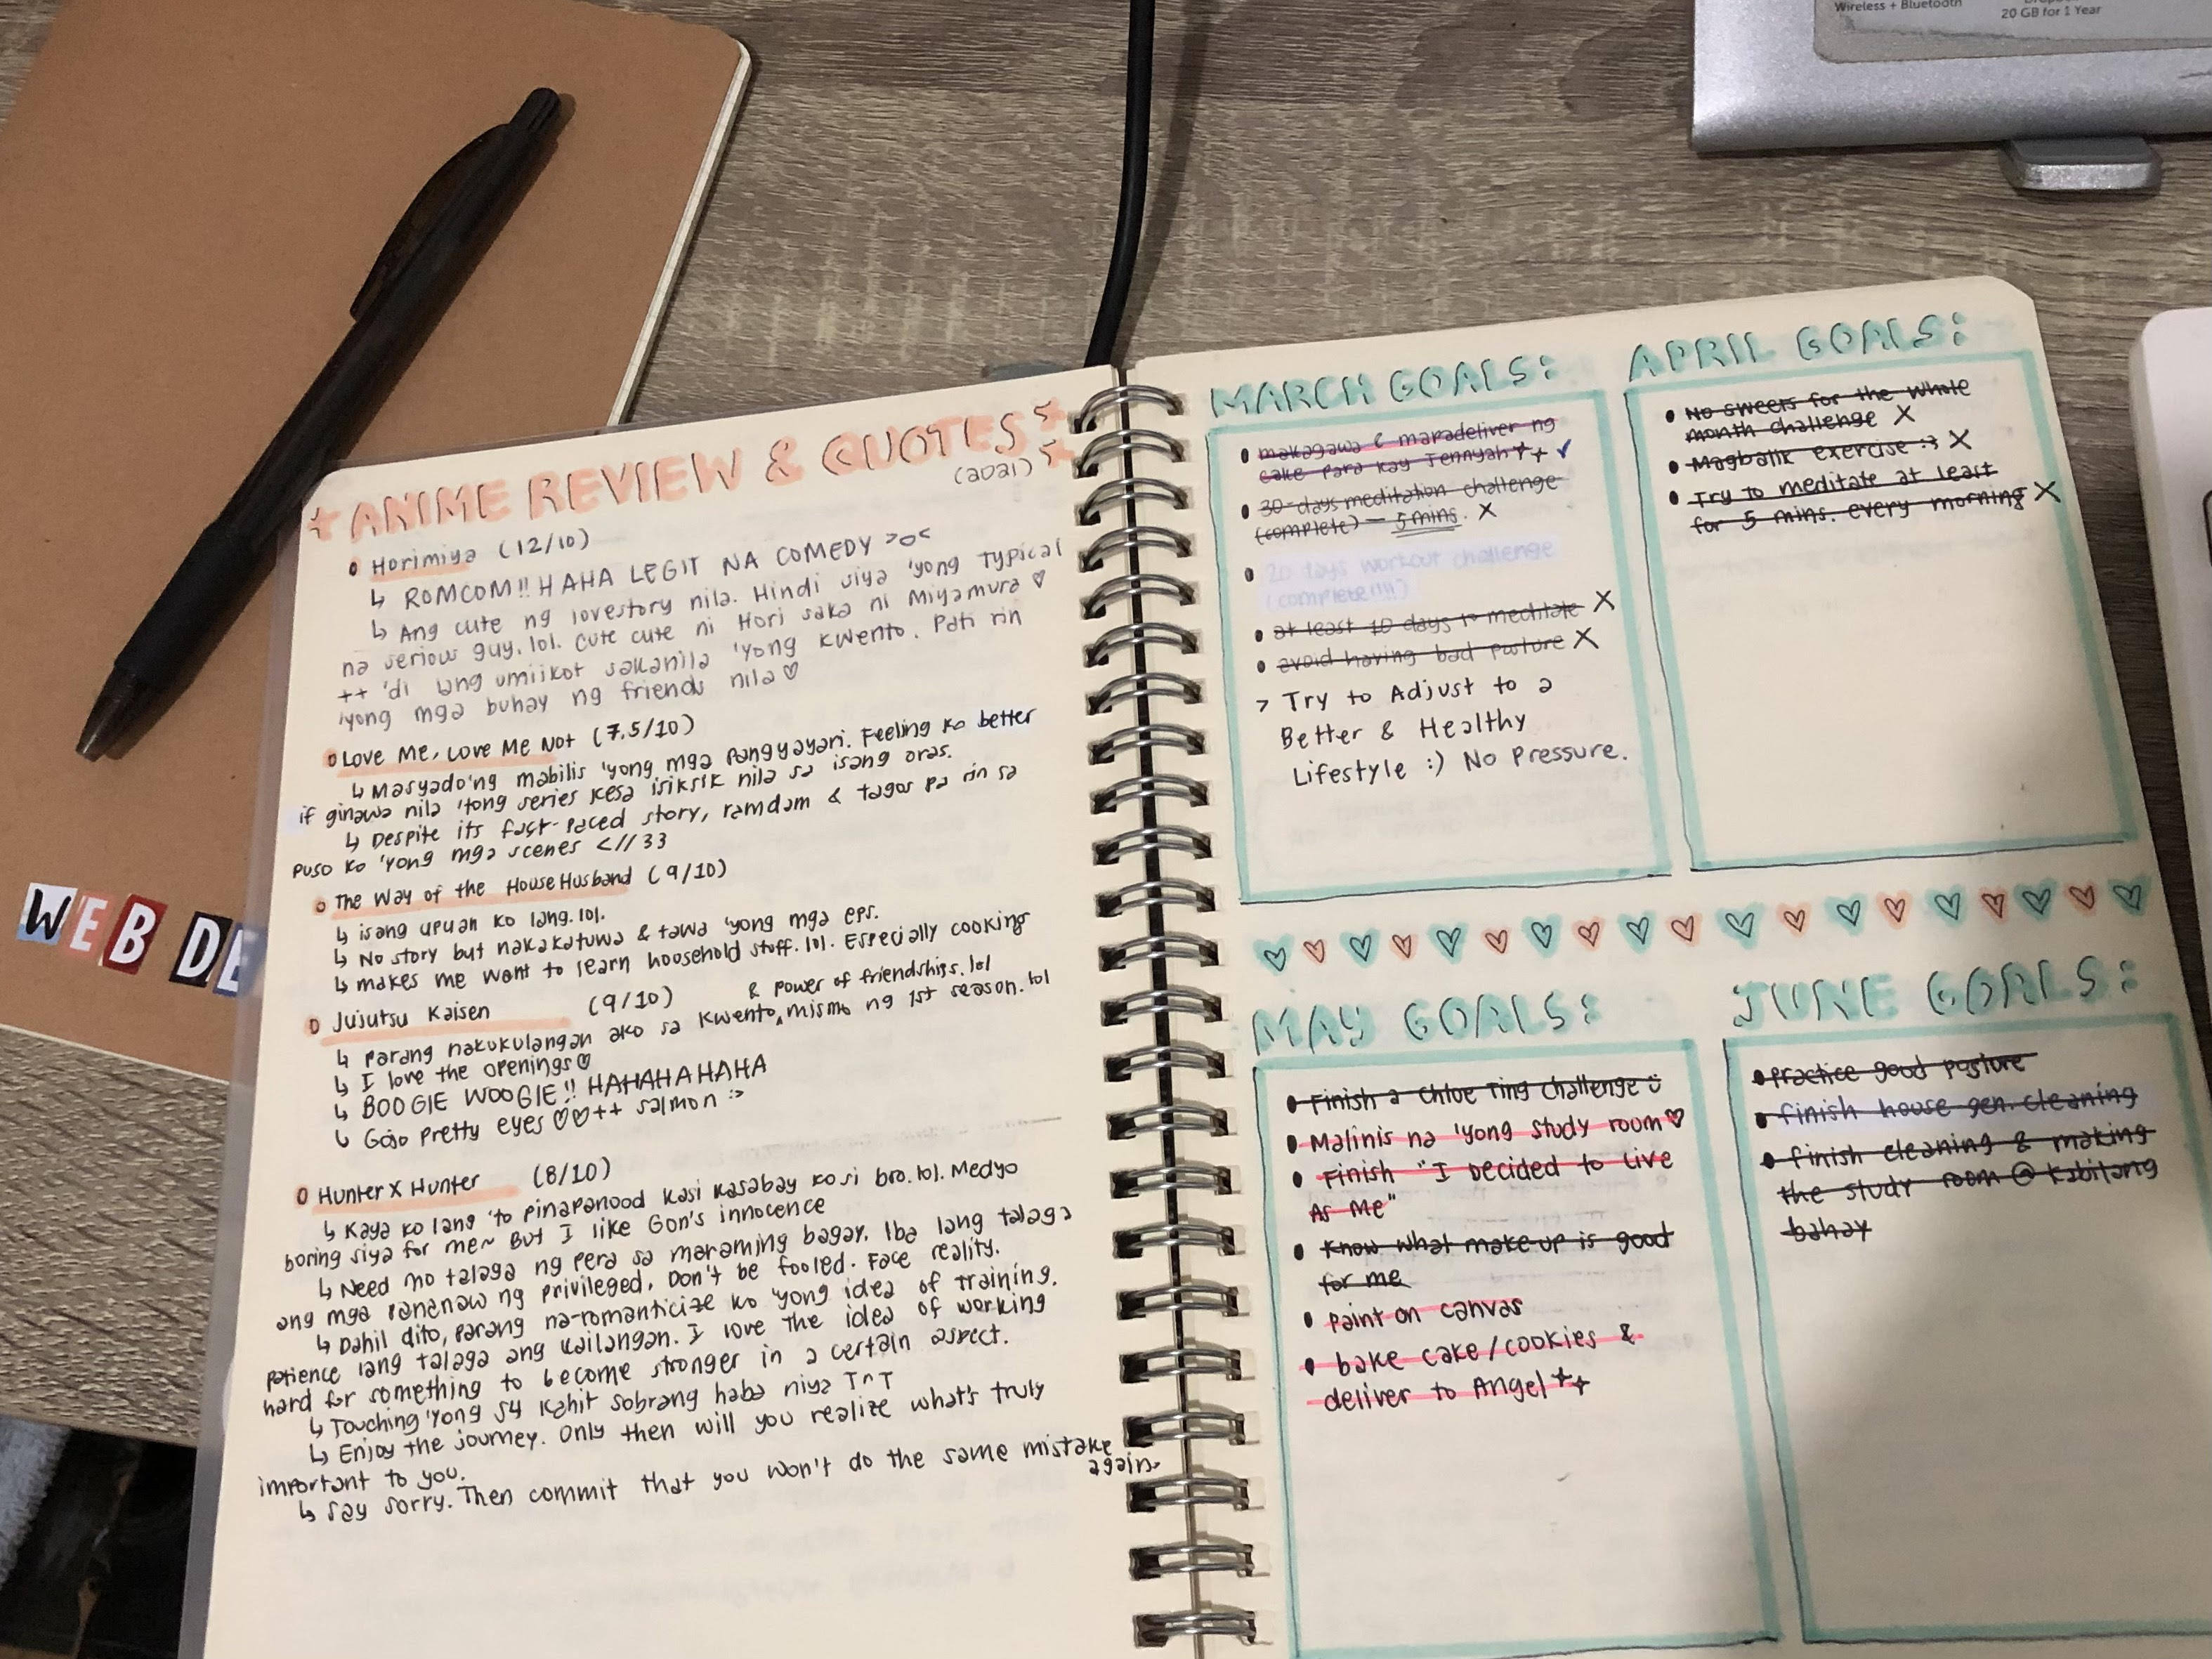 Wireless + Bluetooth
20 GB for 1 Year
WEB DE
ANIME REVIEW & QUOTES
(2021)
Horimiya (12/10)
↳ ROMCOM!! HAHA LEGIT NA COMEDY >o<
↳ Ang cute ng lovestory nila. Hindi siya 'yong typical
na serious guy. lol. cute cute ni Hori saka ni Miyamura ♡
++ 'di lang umiikot sakanila 'yong kwento. Pati rin
'yong mga buhay ng friends nila ♡
Love Me, Love Me Not (7.5/10)
↳ Masyado'ng mabilis 'yong mga pangyayari. Feeling ko better
if ginawa nila 'tong series kesa isiksik nila sa isang oras.
↳ Despite its fast-paced story, ramdam & tagos pa rin sa
puso ko 'yong mga scenes <//33
The Way of the HouseHusband (9/10)
↳ isang upuan ko lang. lol.
↳ No story but nakakatuwa & tawa 'yong mga eps.
↳ makes me want to learn household stuff. lol. Especially cooking
Jujutsu Kaisen (9/10)
& power of friendships. lol
↳ parang nakukulangan ako sa kwento mismo ng 1st season. lol
↳ I love the openings ♡
↳ BOOGIE WOOGIE!! HAHAHAHAHA
↳ Gojo pretty eyes ♡♡ ++ salmon :>
Hunter X Hunter (8/10)
↳ Kaya ko lang 'to pinapanood kasi kasabay ko si bro. lol. Medyo
boring siya for me~ But I like Gon's innocence
↳ Need mo talaga ng pera sa maraming bagay. Iba lang talaga
ang mga pananaw ng privileged. Don't be fooled. Face reality.
↳ Dahil dito, parang na-romanticize ko 'yong idea of training.
patience lang talaga ang kailangan. I love the idea of working
hard for something to become stronger in a certain aspect.
↳ Touching 'yong S4 kahit sobrang haba niya T^T
↳ Enjoy the journey. Only then will you realize what's truly
important to you.
↳ Say sorry. Then commit that you won't do the same mistake
again.
MARCH GOALS:
makagawa & mapadeliver ng
cake para kay Jennyah ++ ✓
30-days meditation challenge
(complete) - 5 mins. X
20 days workout challenge
(complete!!!!)
at least 10 days to meditate X
avoid having bad posture X
> Try to Adjust to a
Better & Healthy
Lifestyle :) No Pressure.
APRIL GOALS:
No sweets for the whole
month challenge X
Magbalik exercise :> X
Try to meditate at least
for 5 mins. every morning X
MAY GOALS:
Finish a Chloe Ting challenge
Malinis na 'yong study room ♡
Finish "I Decided to Live
As Me"
Know what make-up is good
for me
Paint on canvas
bake cake/cookies &
deliver to Angel ++
JUNE GOALS:
practice good posture
finish house gen. cleaning
finish cleaning & making
the study room @ kabilang
bahay